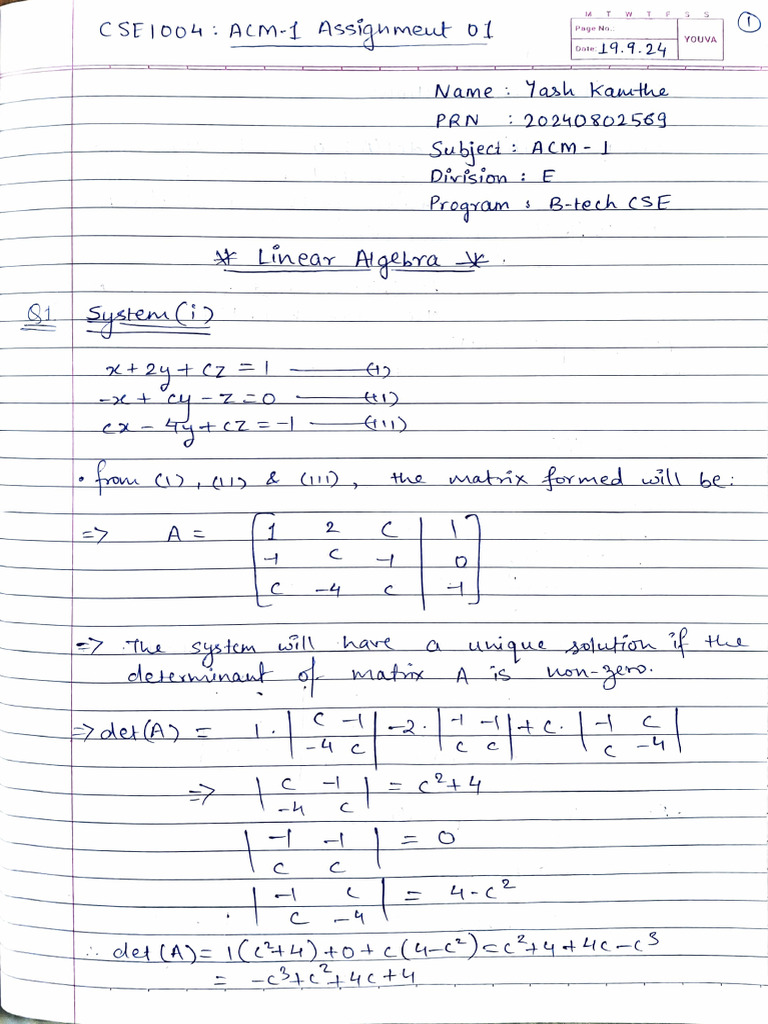 CSE1004: ACM-1 Assignment 01
M T W T F S S
Page No.:
Date: 19.9.24
YOUVA
1
Name : Yash Kamthe
PRN : 20240802569
Subject : ACM-1
Division : E
Program : B-tech CSE
* Linear Algebra *.
Q1. System (i)
x + 2y + cz = 1 —— (I)
-x + cy - z = 0 —— (II)
cx - 4y + cz = -1 —— (III)
• from (I), (II) & (III), the matrix formed will be:
=> A = [ 1 2 c | 1 ]
[ -1 c -1 | 0 ]
[ c -4 c | -1 ]
=> The system will have a unique solution if the
determinant of matrix A is non-zero.
=> det(A) = 1 · | c -1 | -2 · | -1 -1 | + c · | -1 c |
| -4 c | | c c | | c -4 |
=> | c -1 | = c² + 4
| -4 c |
| -1 -1 | = 0
| c c |
| -1 c | = 4 - c²
| c -4 |
∴ det (A) = 1(c²+4) + 0 + c(4-c²) = c² + 4 + 4c - c³
= -c³ + c² + 4c + 4